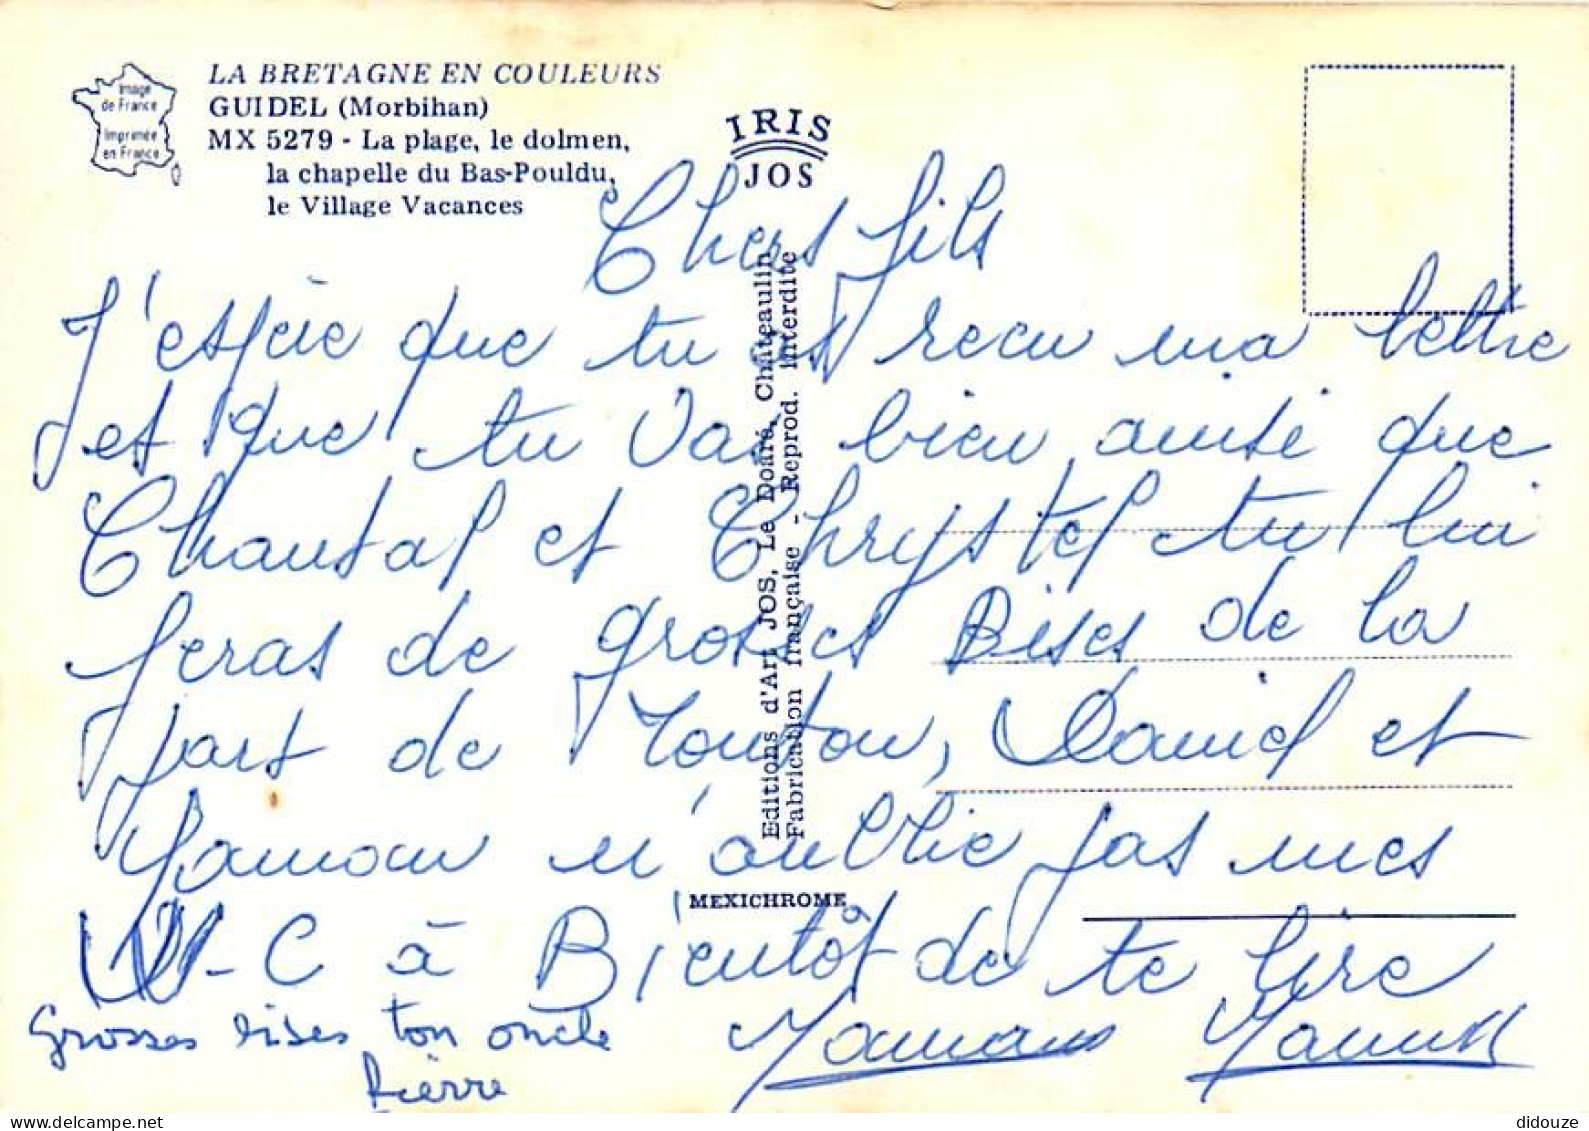 Image
de France
Imprimée
en France
LA BRETAGNE EN COULEURS
GUIDEL (Morbihan)
MX 5279 - La plage, le dolmen,
la chapelle du Bas-Pouldu,
le Village Vacances
IRIS
JOS
Editions d'Art JOS, Le Doaré, Châteaulin
Fabrication française - Reprod. interdite
MEXICHROME
Chers fils
J'espère que tu as recu ma lettre
et que tu vas bien ainsi que
Chantal et Chrystel tu lui
feras de grosses Bises de la
part de Tonton, Daniel et
Maman n'oublie pas mes
W-C à Bientôt de te lire
Maman Yannick
Grosses bises ton oncle
Pierre
didouze